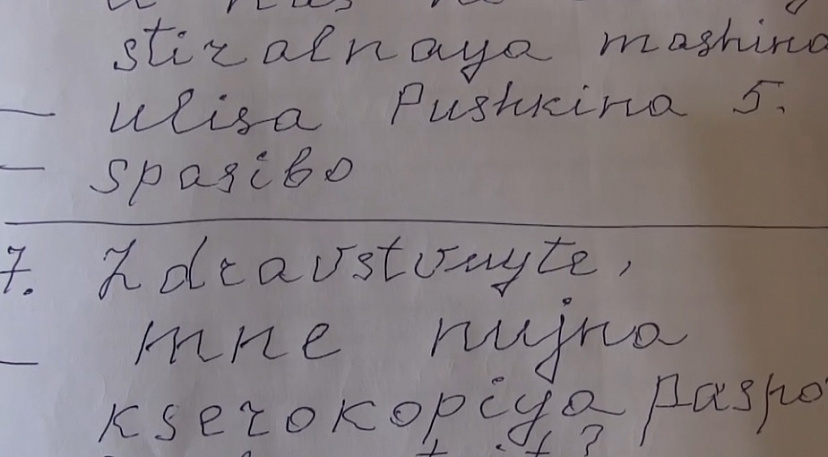 stiralnaya mashina
— ulisa Pushkina 5.
— spasibo
7. Zdravstvuyte,
— mne nujna
kserokopiya paspo